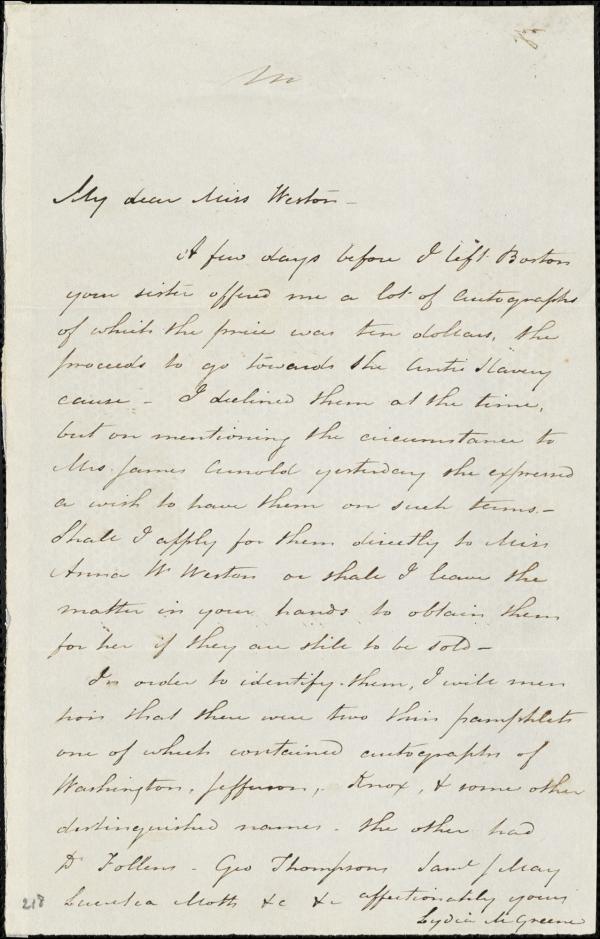 My dear Miss Weston -
A few days before I left Boston
your sister offered me a lot of autographs
of which the price was ten dollars, the
proceeds to go towards the Anti Slavery
cause - I declined them at the time,
but on mentioning the circumstance to
Mrs. James Arnold yesterday she expressed
a wish to have them on such terms. -
Shall I apply for them directly to Miss
Anna W. Weston or shall I leave the
matter in your hands to obtain them
for her if they are still to be sold -
In order to identify them, I will men
tion that there were two thin pamphlets
one of which contained autographs of
Washington, Jefferson, Knox, & some other
distinguished names. the other had
Dr Follens - Geo Thompsons Saml J May
Lucretia Motts &c &c affectionately yours
Lydia M Greene
218